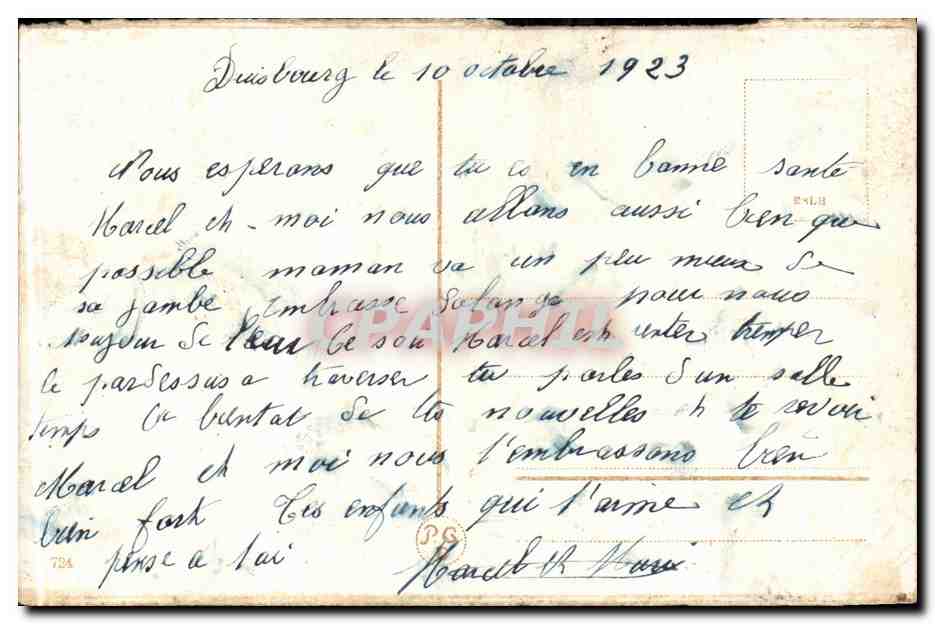 Duisbourg le 10 octobre 1923
Nous esperons que tu es en bonne sante
Marcel et moi nous allons aussi bien que
possible maman va un peu mieux de
sa jambe embrasse Solange pour nous
toujour de l'eau ce soir Marcel est renter tremper
le pardessus a traverser tu parles d'un salle
temps a bientot de tes nouvelles et te revoir
Marcel et moi nous t'embrassons bien
bien fort Tes enfants qui t'aime et
pense a toi
Marcel et Marie
CPAPHIL
PG
724